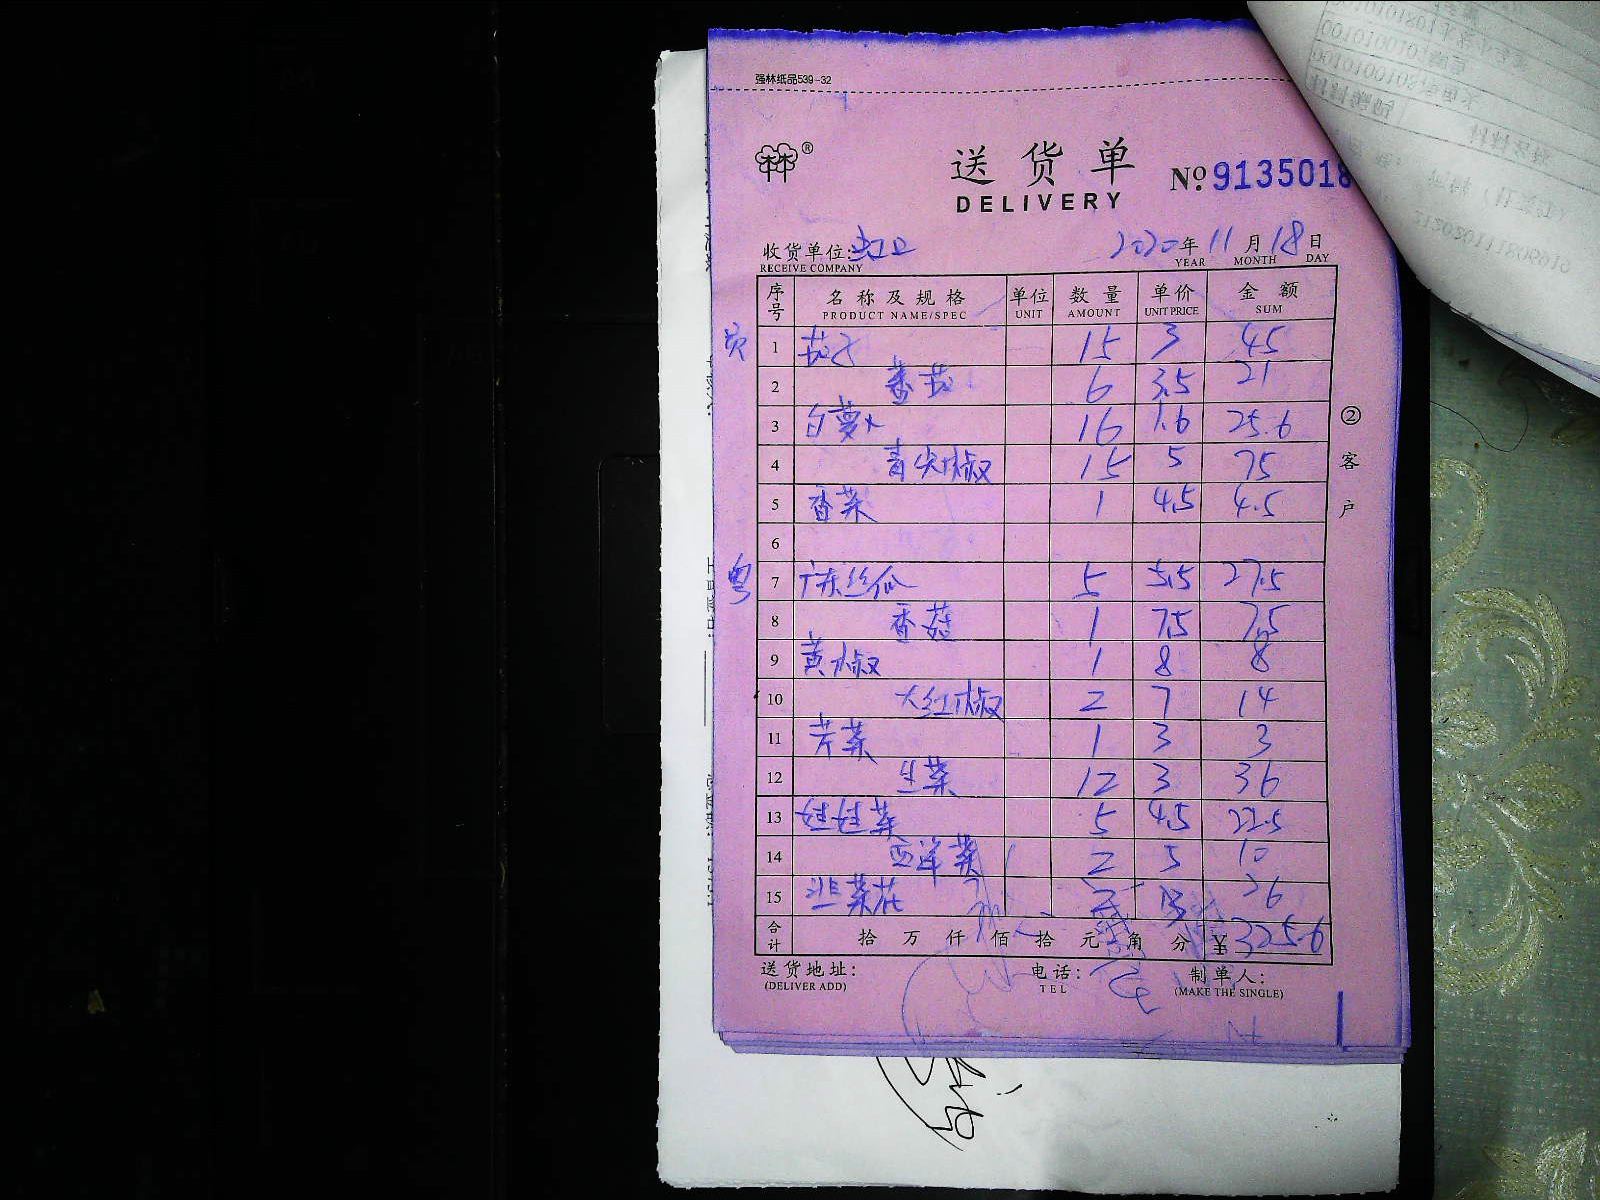 强林纸品539-32
林林®
送货单
DELIVERY
No.9135018
收货单位:虹口 2020年11月18日
RECEIVE COMPANY YEAR MONTH DAY
序号 名称及规格 单位 数量 单价 金额
PRODUCT NAME/SPEC UNIT AMOUNT UNIT PRICE SUM
员 1 茄子 15 3 45
2 番茄 6 3.5 21
3 白萝卜 16 1.6 25.6
4 青尖椒 15 5 75
5 香菜 1 4.5 4.5
6
粤 7 广东丝瓜 5 5.5 27.5
8 香菇 1 7.5 7.5
9 黄椒 1 8 8
10 大红椒 2 7 14
11 芹菜 1 3 3
12 生菜 12 3 36
13 娃娃菜 5 4.5 22.5
14 西洋菜 2 5 10
15 韭菜花 2 13 26
合计 拾万仟佰拾元角分 ¥ 325.6
②客户
送货地址: 电话: 制单人:
(DELIVER ADD) TEL (MAKE THE SINGLE)